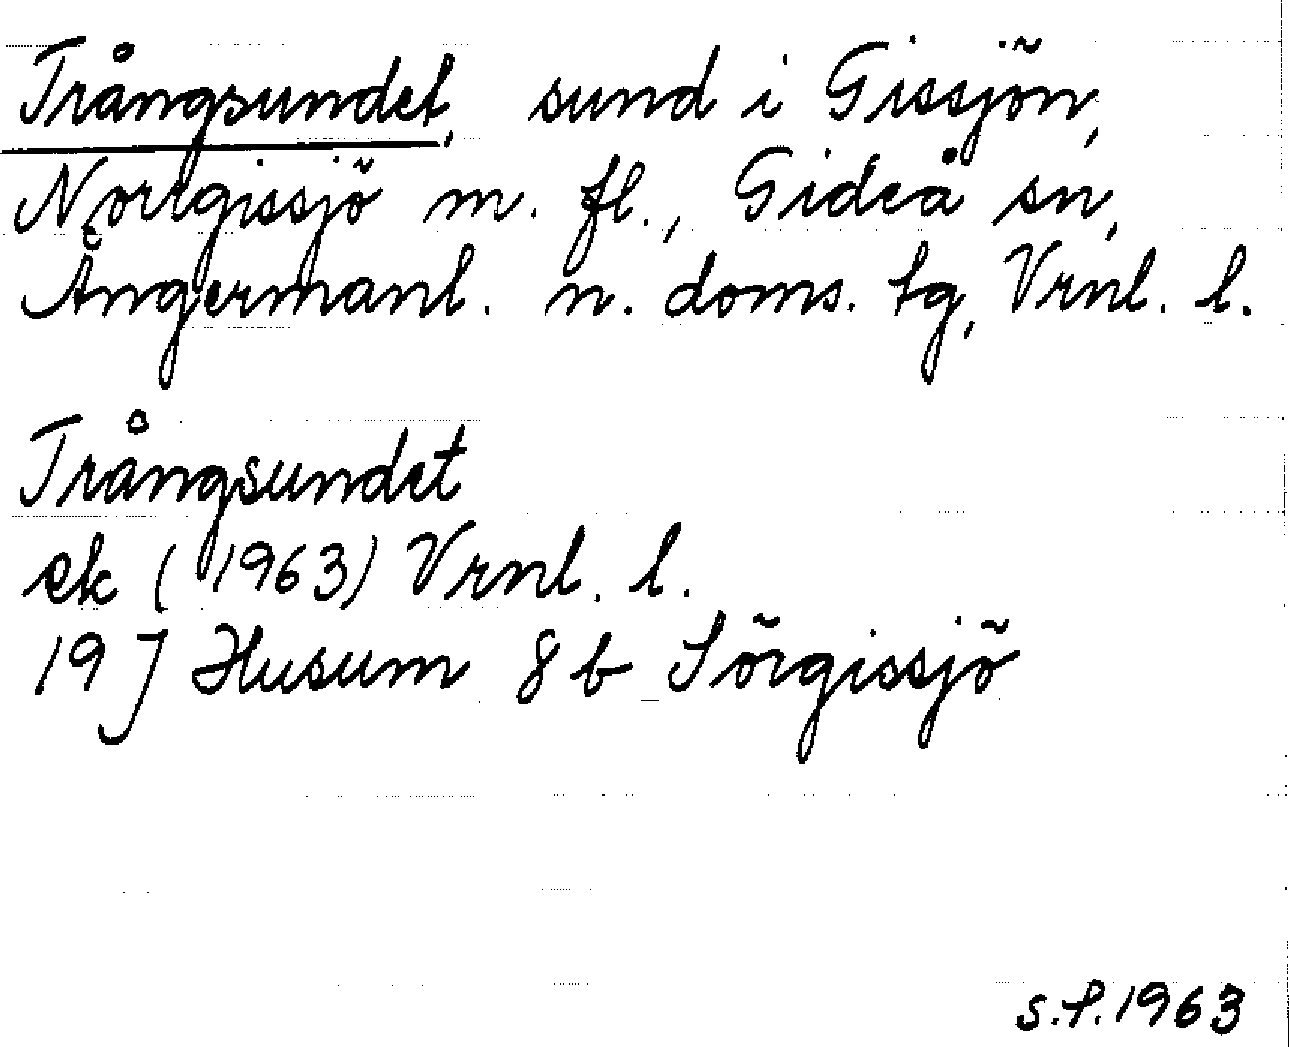 Trångsundet, sund i Gissjön,
Norrgissjö m. fl., Gideå sn,
Ångermanl. n. doms. tg, Vrnl. l.
Trångsundet
ek (1963) Vrnl. l.
19 J Husum 8 b Sörgissjö
s.f. 1963